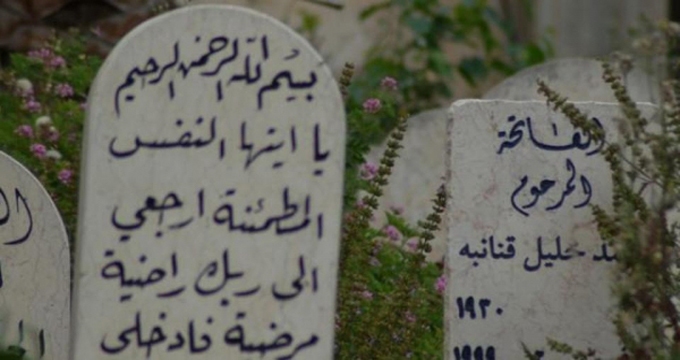 بسم الله الرحمن الرحيم
يا ايتها النفس
المطمئنة ارجعي
الى ربك راضية
مرضية فادخلي
الفاتحة
المرحوم
خليل قنانبه
١٩٢٠
١٩٩٩